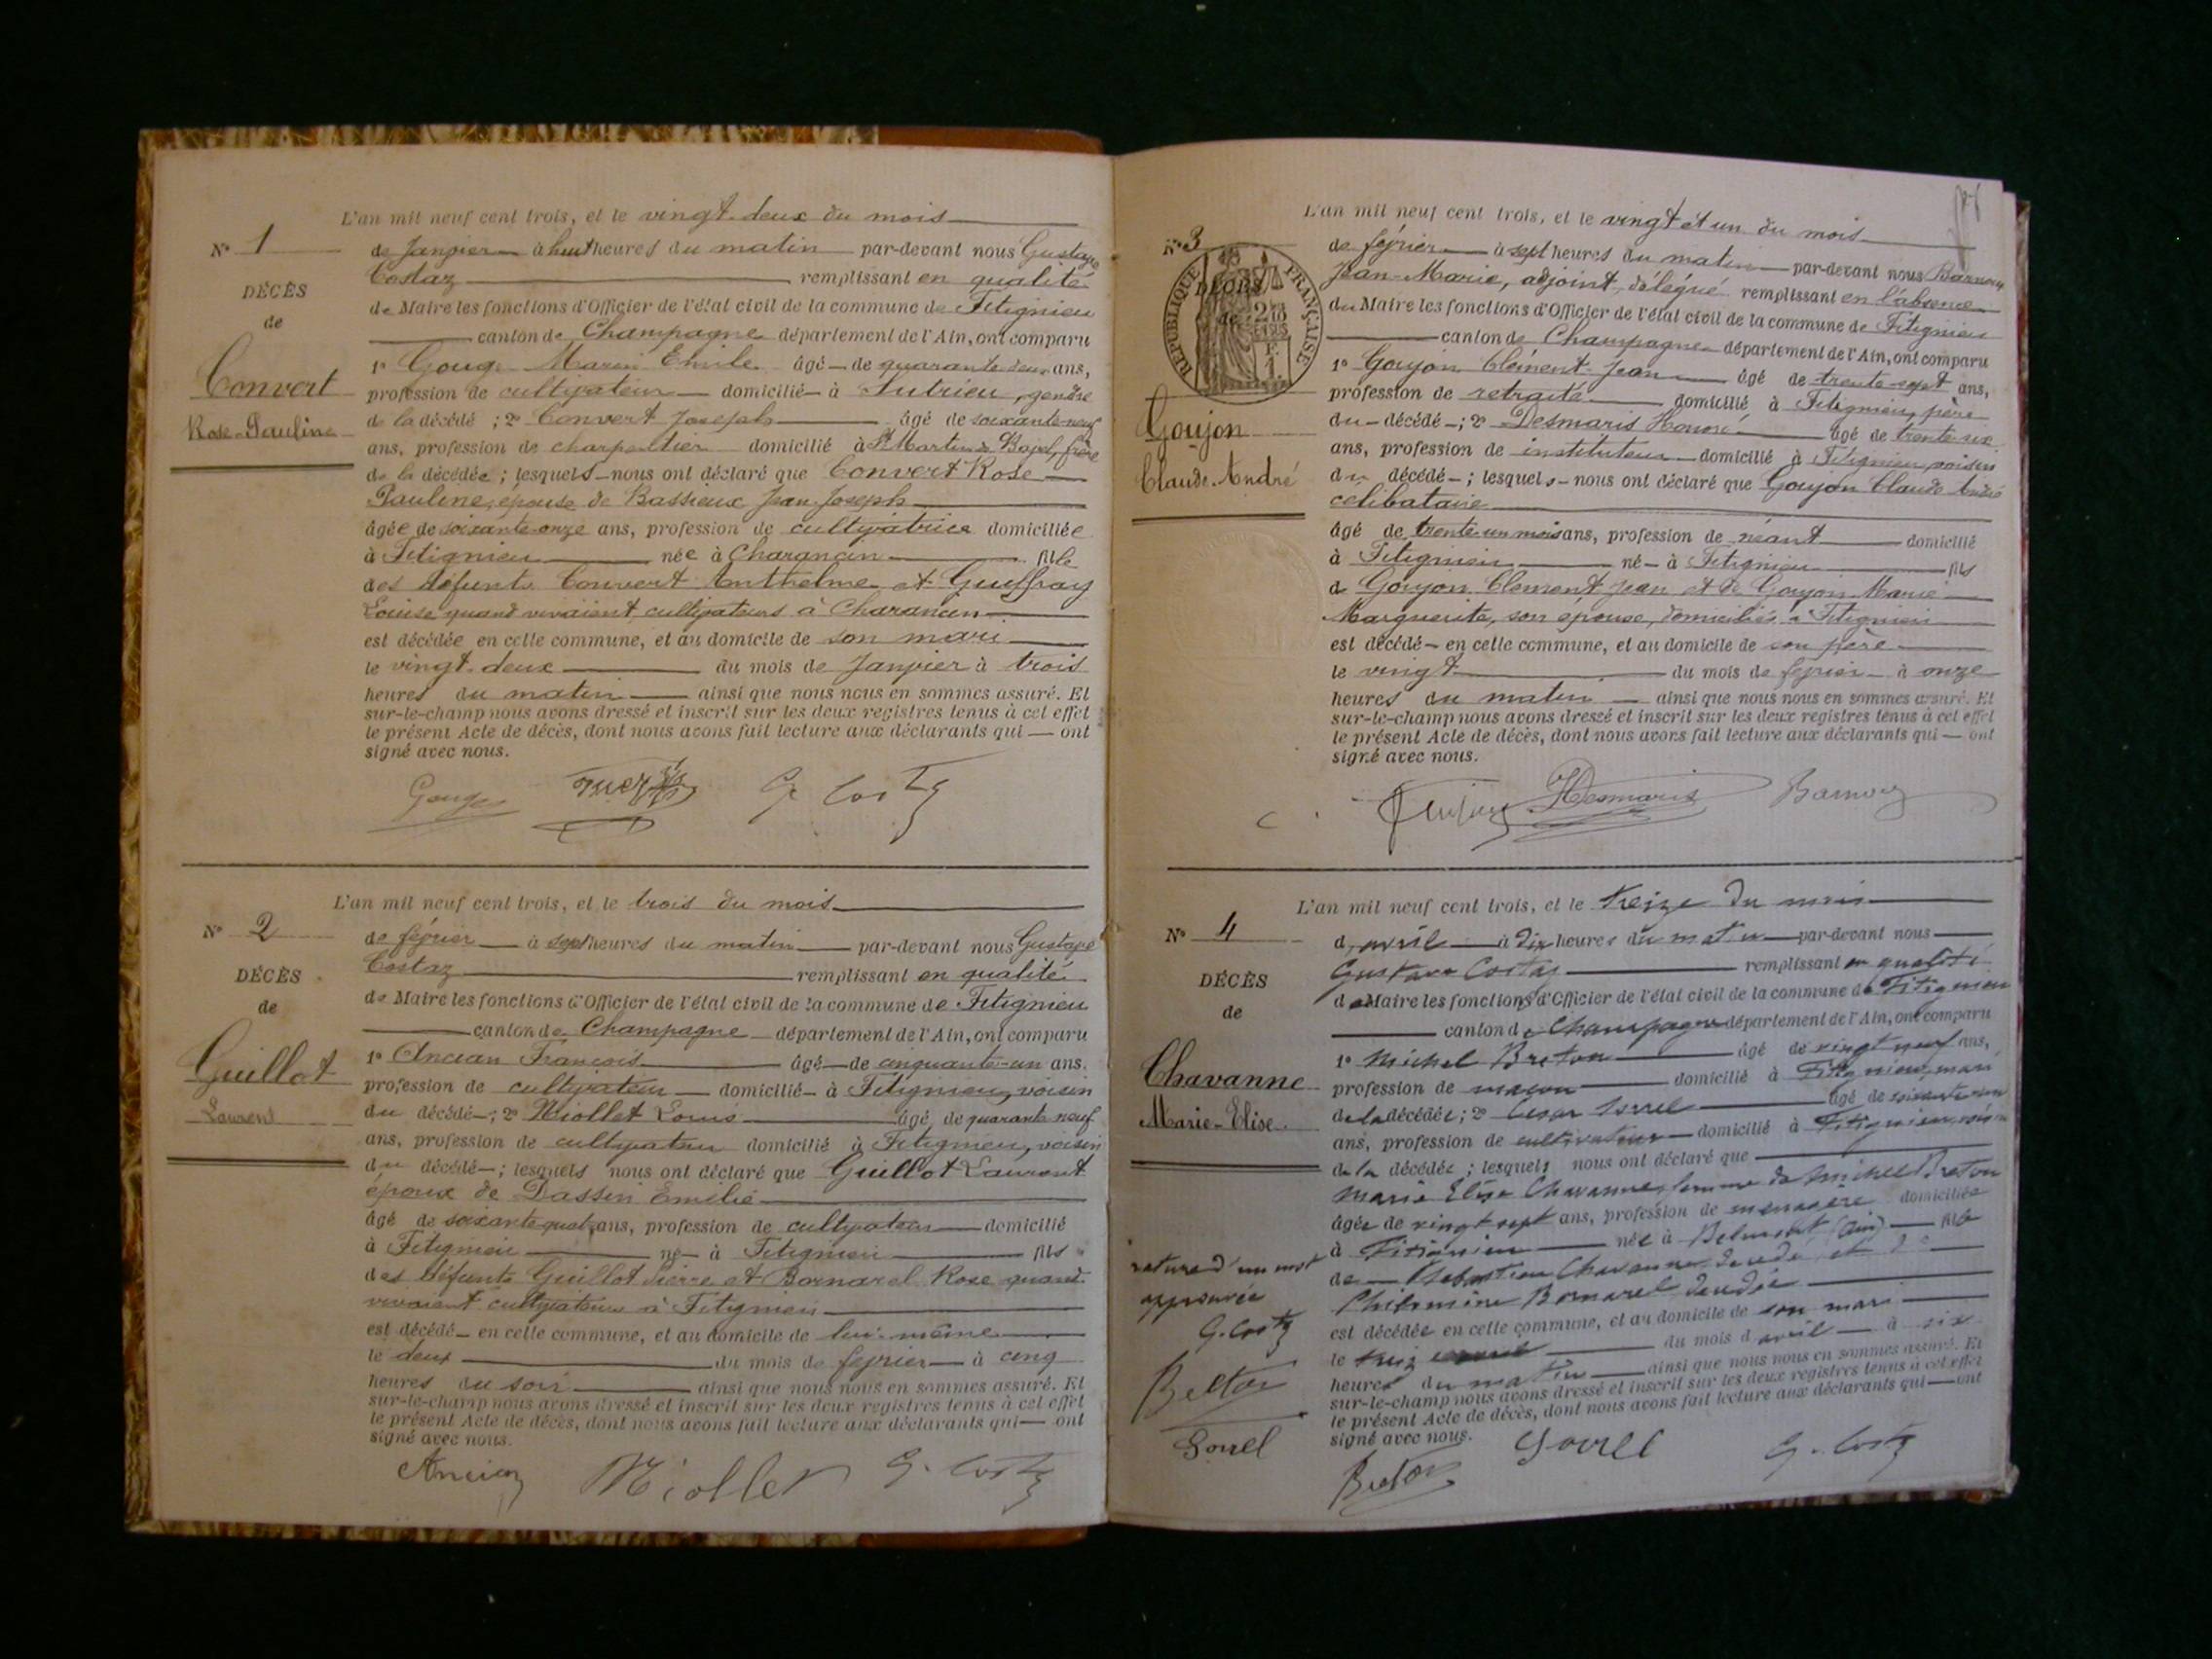 L'an mil neuf cent trois, et le vingt-deux du mois
N° 1
de Janvier à huit heures du matin par-devant nous Gustave
Costaz remplissant en qualité
DÉCÈS
de Maire les fonctions d'Officier de l'état civil de la commune de Fitignieu
de
canton de Champagne département de l'Ain, ont comparu
1° Gouge Marin Emile âgé de quarante deux ans,
Convert
profession de cultivateur domicilié à Lutrieu, gendre
Rose-Pauline
de la décédé ; 2° Convert Joseph âgé de soixante-neuf
ans, profession de charpentier domicilié à St Martin de Bavel, frère
de la décédée ; lesquels nous ont déclaré que Convert Rose
Pauline, épouse de Bassieux Jean Joseph
âgée de soixante-onze ans, profession de cultivatrice domiciliée
à Fitignieu née à Charancin fille
des défunts Convert Anthelme et Gueffray
Louise quand vivaient cultivateurs à Charancin
est décédée en cette commune, et au domicile de son mari
le vingt-deux du mois de Janvier à trois
heures du matin ainsi que nous nous en sommes assuré. Et
sur-le-champ nous avons dressé et inscrit sur les deux registres tenus à cet effet
le présent Acte de décès, dont nous avons fait lecture aux déclarants qui ont
signé avec nous.
Gouge G. Costaz
L'an mil neuf cent trois, et le trois du mois
N° 2
de février à sept heures du matin par-devant nous Gustave
Costaz remplissant en qualité
DÉCÈS
de Maire les fonctions d'Officier de l'état civil de la commune de Fitignieu
de
canton de Champagne département de l'Ain, ont comparu
1° Ancian François âgé de cinquante-un ans.
Guillot
profession de cultivateur domicilié à Fitignieu, voisin
Laurent
du décédé ; 2° Miollet Louis âgé de quarante neuf
ans, profession de cultivateur domicilié à Fitignieu, voisin
du décédé ; lesquels nous ont déclaré que Guillot Laurent
époux de Dassin Emélie
âgé de soixante quatre ans, profession de cultivateur domicilié
à Fitignieu né à Fitignieu fils
des défunts Guillot Pierre et Bornarel Rose quand
vivaient cultivateurs à Fitignieu
est décédé en cette commune, et au domicile de lui-même
le deux du mois de février à cinq
heures du soir ainsi que nous nous en sommes assuré. Et
sur-le-champ nous avons dressé et inscrit sur les deux registres tenus à cet effet
le présent Acte de décès, dont nous avons fait lecture aux déclarants qui ont
signé avec nous.
Ancian Miollet G. Costaz
L'an mil neuf cent trois, et le vingt et un du mois
N° 3
de février à sept heures du matin par-devant nous Barnoux
RÉPUBLIQUE FRANÇAISE
DÉCÈS
de
Jean-Marie, adjoint, délégué remplissant en l'absence
du Maire les fonctions d'Officier de l'état civil de la commune de Fitignieu
canton de Champagne département de l'Ain, ont comparu
1° Goujon Clément Jean âgé de trente-sept ans,
profession de retraité domicilié à Fitignieu, père
Goujon
du décédé ; 2° Desmaris Honoré âgé de trente-six
Claude-André
ans, profession de instituteur domicilié à Fitignieu, voisin
du décédé ; lesquels nous ont déclaré que Goujon Claude André
célibataire
âgé de trente-un mois ans, profession de néant domicilié
à Fitignieu né à Fitignieu fils
de Goujon Clément Jean et de Goujon Marie
Marguerite, son épouse, domiciliés à Fitignieu
est décédé en cette commune, et au domicile de son père
le vingt du mois de février à onze
heures du matin ainsi que nous nous en sommes assuré. Et
sur-le-champ nous avons dressé et inscrit sur les deux registres tenus à cet effet
le présent Acte de décès, dont nous avons fait lecture aux déclarants qui ont
signé avec nous.
Goujon HDesmaris Barnoux
L'an mil neuf cent trois, et le treize du mois
N° 4
d'avril à dix heures du matin par-devant nous
Gustave Costaz remplissant en qualité
DÉCÈS
de Maire les fonctions d'Officier de l'état civil de la commune de Fitignieu
de
canton de Champagne département de l'Ain, ont comparu
1° Michel Breton âgé de vingt neuf ans,
Chavanne
profession de maçon domicilié à Fitignieu, mari
Marie-Elise
de la décédée ; 2° César Sorrel âgé de soixante-un
ans, profession de cultivateur domicilié à Fitignieu, voisin
de la décédée ; lesquels nous ont déclaré que
Marie Elise Chavanne, femme de Michel Breton
âgée de vingt sept ans, profession de ménagère domiciliée
à Fitignieu née à Belmont (Ain) fille
de Sébastien Chavanne décédé et de
Philomène Bornarel décédée
est décédée en cette commune, et au domicile de son mari
le treize du mois d'avril à six
heures du matin ainsi que nous nous en sommes assuré. Et
sur-le-champ nous avons dressé et inscrit sur les deux registres tenus à cet effet
le présent Acte de décès, dont nous avons fait lecture aux déclarants qui ont
signé avec nous.
Breton Sorrel G. Costaz
rature d'un mot
approuvée
G. Costaz
Breton
Sorrel